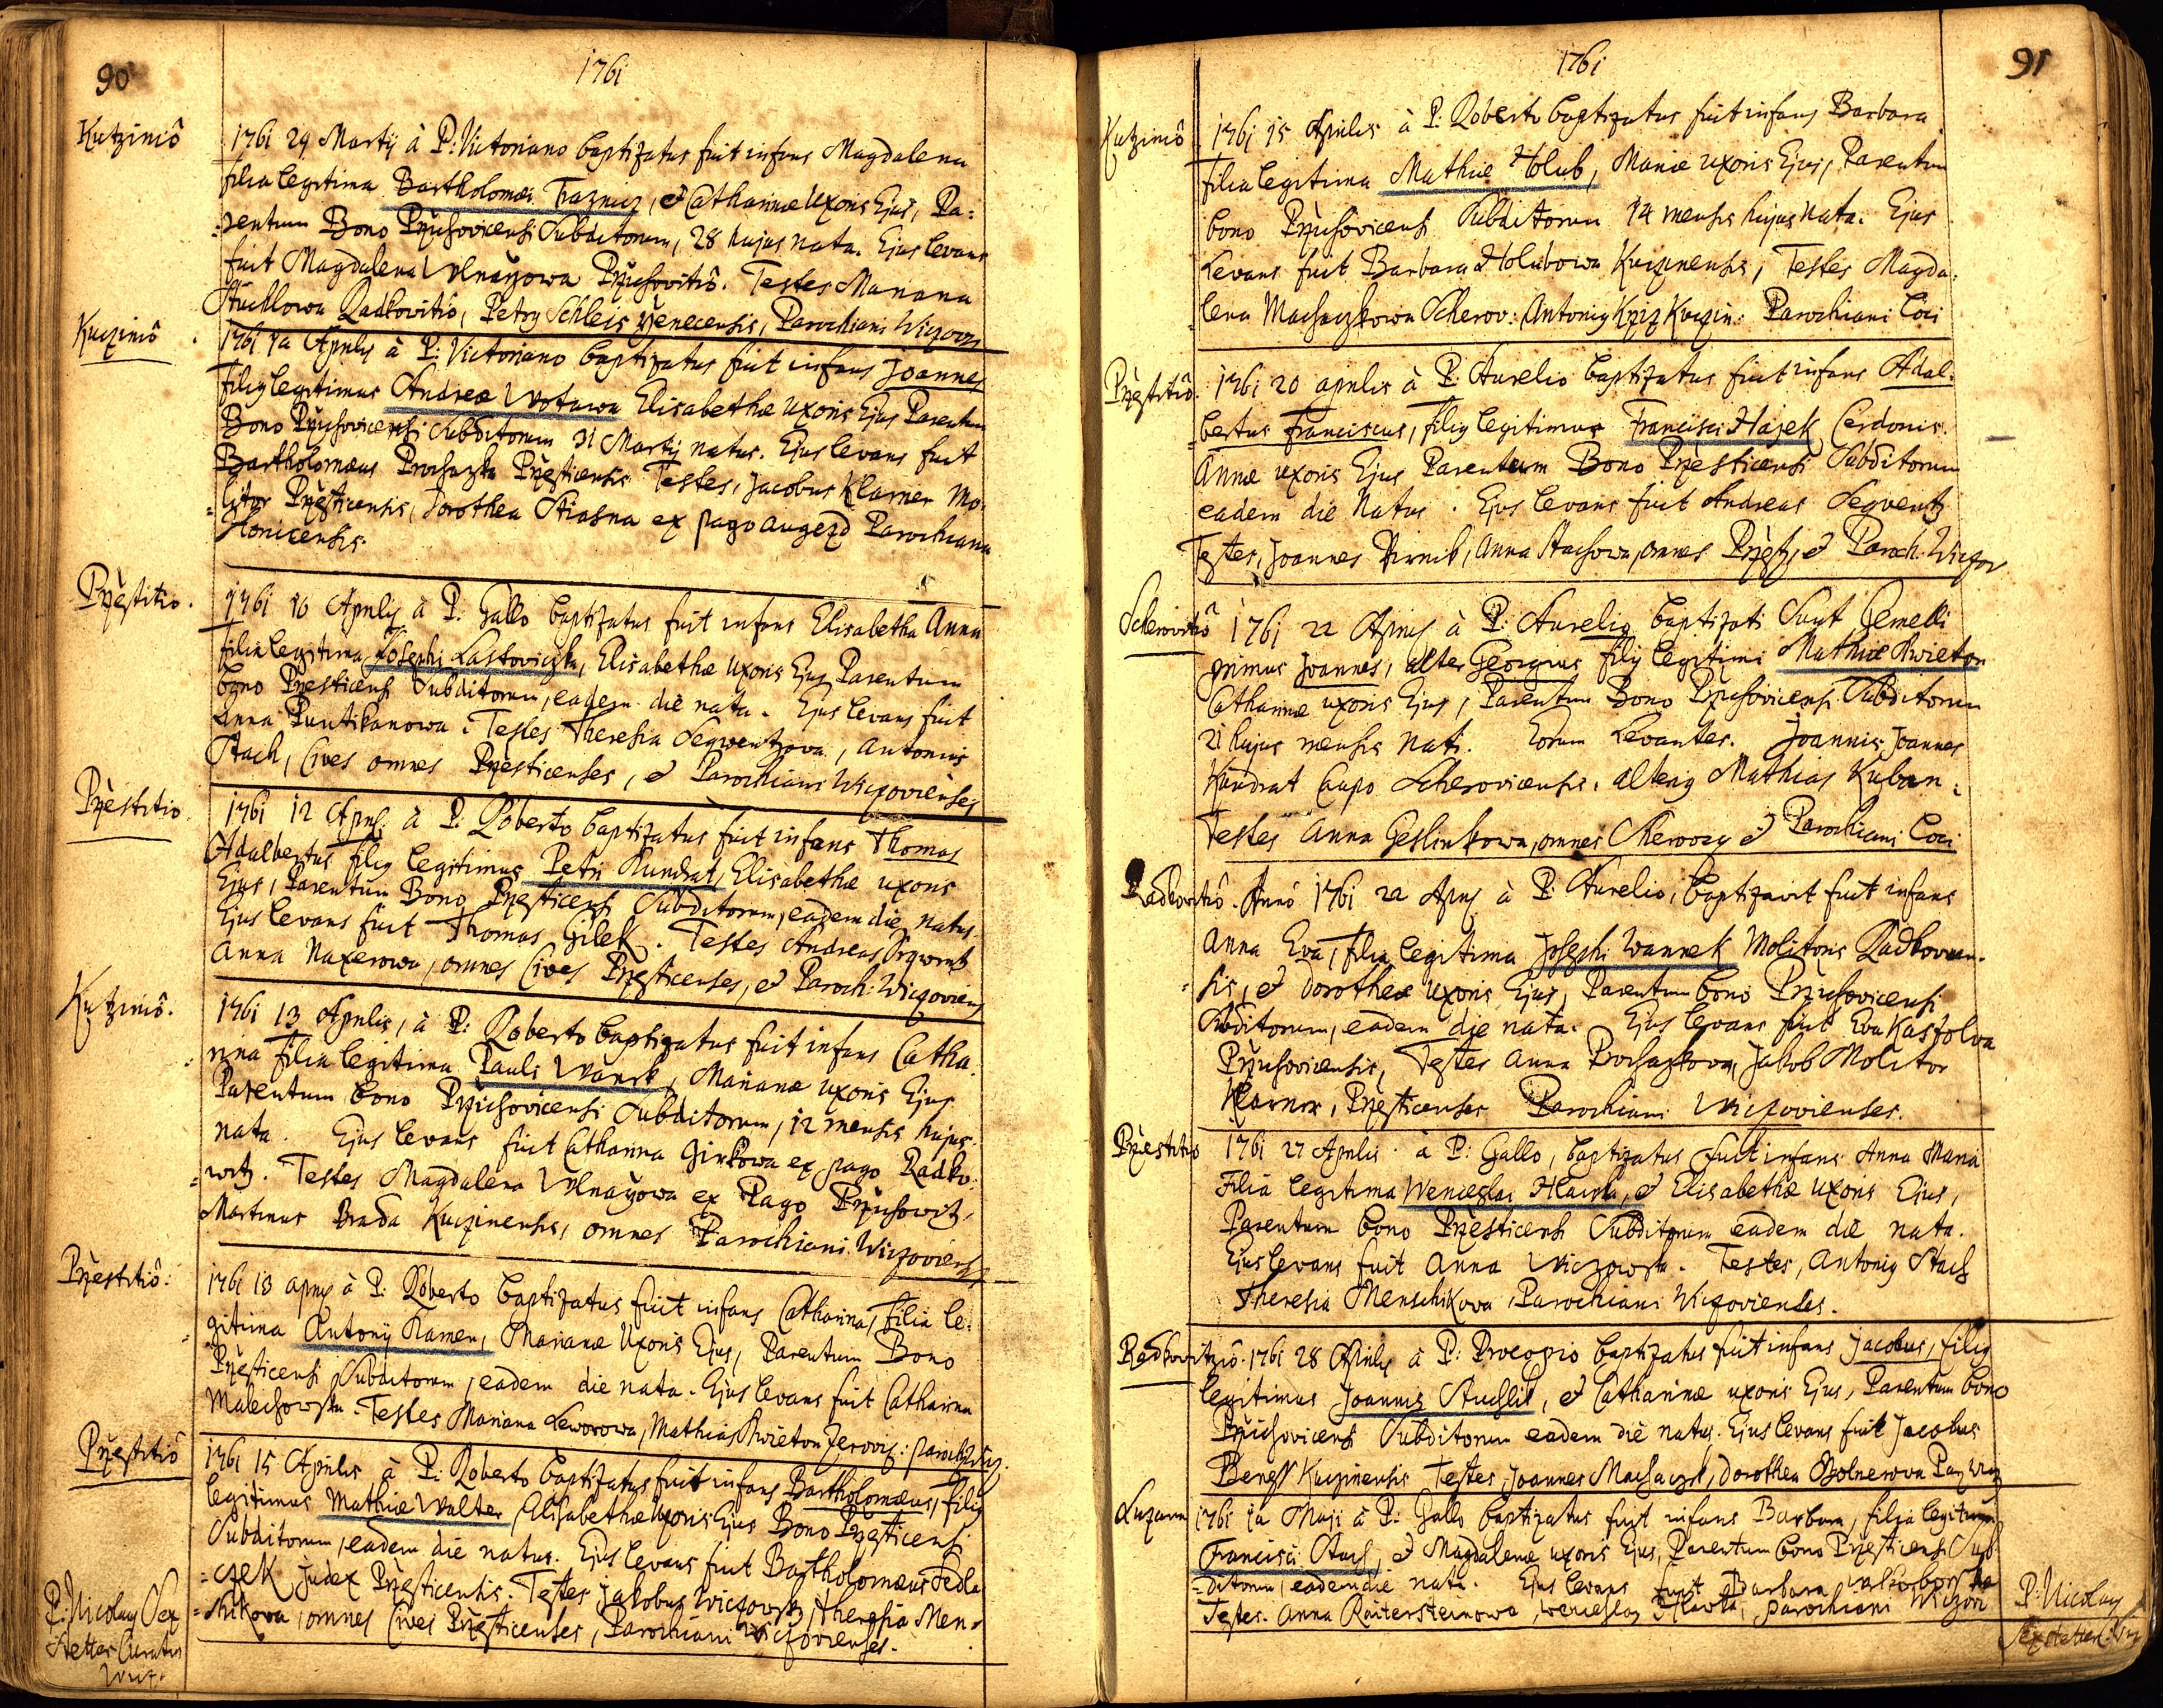 90
1761
Kutziniô
1761 29 Martij à P: Victoriano baptizatus fuit infans Magdalena
filia legitima Bartholomæi Traznicz, & Catharinæ Uxoris Ejus, Pa=
=rentum Bono Przichovicensi Subditorum, 28 hujus nata. Ejus levans
fuit Magdalena Przichovitiô. Testes Mariana
Stuchlowa Radkovitiô, Petrg Schleis Parochiani Wiczov
Kucziniô
1761 1a Aprilis à P: Victoriano baptizatus fuit infans Joannes
filig legitimus Andreæ Wotawa Elisabethæ Uxoris Ejus Parentum
Bono Przichovicensi Subditorum 31 Martij natus. Ejus levans fuit
Bartholomæus Prochazka Przesticensis Testes, Jacobus Klarner Mo=
=litor Przesticensis, Dorothea Stiasna ex pago augezd Parochiana
Przestitiô.
1761 10 Aprilis à P: Gallo baptizatus fuit infans Elisabetha Anna
filia legitima Josephi Lastoviczka, Elisabethæ Uxoris Ejus Parentum
bono Przesticensi Subditorum, eadem die nata. Ejus levans fuit
Anna Puntikanowa. Testes Theresia Seqwentzowa, Antonius
Stach, Cives omnes Przesticenses, & Parochiani Wiczovienses
Przestitiô
1761 12 April à P: Roberto baptizatus fuit infans Thomas
Adalbertus filig legitimus Petri Kundrat, Elisabethæ uxoris
Ejus, Parentum Bono Przesticensi Subditorum, eadem die natus.
Ejus levans fuit Thomas Gilek. Testes Andreas
Anna Naxerowa, omnes Cives Przesticenses, & Paroch: Wicqoviens
Kutziniô.
1761 13 Aprilis, à P: Roberto baptizatus fuit infans Catha=
=rina filia legitima Pauli Wanek, Marianæ uxoris Ejus
Parentum bono Przichovicensi Subditorum, 12 mensis hujus
nata. Ejus levans fuit Catharina Girkowa ex pago Radko=
=witz. Testes Magdalena ex Pago Przichowitz,
Martinus Brada Kuczinensis, omnes Parochiani Wiczoviens
Przestitiô:
1761 13 aprilis à P: Roberto baptizatus fuit infans Catharina, Filia le=
=gitima Antonij Kamen, Marianæ Uxoris Ejus, Parentum Bono
Przesticensi Subditorum, eadem die nata. Ejus levans fuit Catharina
Malechowska. Testes Mariana Leworowa, Mathias Kwieton
Przestitiô
1761 15 Aprilis à P: Roberto baptizatus fuit infans Bartholomæus, filig
legitimus Mathiæ Walter, Elisabethæ Uxoris Ejus Bono Przesticensi
Subditorum, eadem die natus. Ejus levans fuit Bartholomæus Sedla=
=czek Judex Przesticensis. Testes Jakobus Wiczowsky, Theresia Men=
=shikova, omnes Cives Przesticenses, Parochiani Wiczovienses.
P: Nicolaus Sex
stetter Curatus
91
1761
Kutziniô
1761 15 Aprilis à P: Roberto baptizatus fuit infans Barbara
filia legitima Mathiæ Holub, Mariæ uxoris Ejus, Parentum
bono Przichovicensi Subditorum 14 mensis hujus nata. Ejus
Levans fuit Barbara Holubowa Kuczinensis, Testes Magda=
=lena Machaczkowa Scherov: Antonig Krziz Kuczin: Parochiani Loci
Przestitiô.
1761 20 aprilis à P: Aurelio baptizatus fuit infans Adal=
=bertus Franciscus, filig legitimus Francisci Hajek Cerdonis.
Annæ uxoris Ejus Parentum Bono Przesticensi Subditorum
eadem die Natus. Ejus levans fuit Andreas Seqventz
Testes, Joannes Pirnik, Anna Stachowa, omnes Przest, & Paroch: Wiczov
Scherovitiô
1761 22 Aprilis à P: Aurelio baptizati Sunt Gemelli
primus Joannes, alter Georgius filij legitimi Mathiæ Kwieton
Catharinæ uxoris Ejus, Parentum Bono Przichovicensi Subditorum
21 hujus mensis Nati. Eorum Levantes. Joannis Joannes
Kundrat Caupo Scherovicensis, alterig Mathias Kuban.
Testes Anna Geslinkowa, omnes & Parochiani Loci
Radkovitiô.
Annô 1761 22 Aprilis à P. Aurelio, baptizavit fuit infans
Anna Eva, filia legitima Josephi Wannek Molitoris Radkovicen=
=sis, & Dorotheæ Uxoris Ejus, Parentum bono Przichovicensi
Subditorum, eadem die nata. Ejus levans fuit Eva
Przichovicensis, Testes Anna Prochazkova, Jakob Molitor
Klarner, Przesticenses Parochiani Wiczovienses.
Przestitiô
1761 27 Aprilis à P: Gallo, baptizatus fuit infans Anna Maria
Filia legitima Wenceslai Hlawka, & Elisabethæ Uxoris Ejus,
Parentum bono Przesticensi Subditorum eadem die nata.
Ejus levans fuit Anna Wiczowska. Testes, Antonig Stach
Theresia Menschikova, Parochiani Wiczovienses.
Radkovitziô.
1761 28 Aprilis à P: Procopio baptizatus fuit infans Jacobus, filig
legitimus Joannis Stuchlik, & Catharinæ uxoris Ejus, Parentum bono
Przichovicensi Subditorum eadem die natus. Ejus levans fuit Jacobus
Beness Kuczinensis Testes, Joannes Machaczek, Dorothea
Luzann
1761 1a Maji à P: Gallo baptizatus fuit infans Barbara, filia legitima
Francisci Stach, & Magdalenæ uxoris Ejus, Parentum bono Przesticensi Sub=
=ditorum, eadem die nata. Ejus levans fuit Barbara
Testes. Anna Raitersteinowa, Wenceslaus Hlawka, parochiani Wiczov
P: Nicolaus
Sexstetter